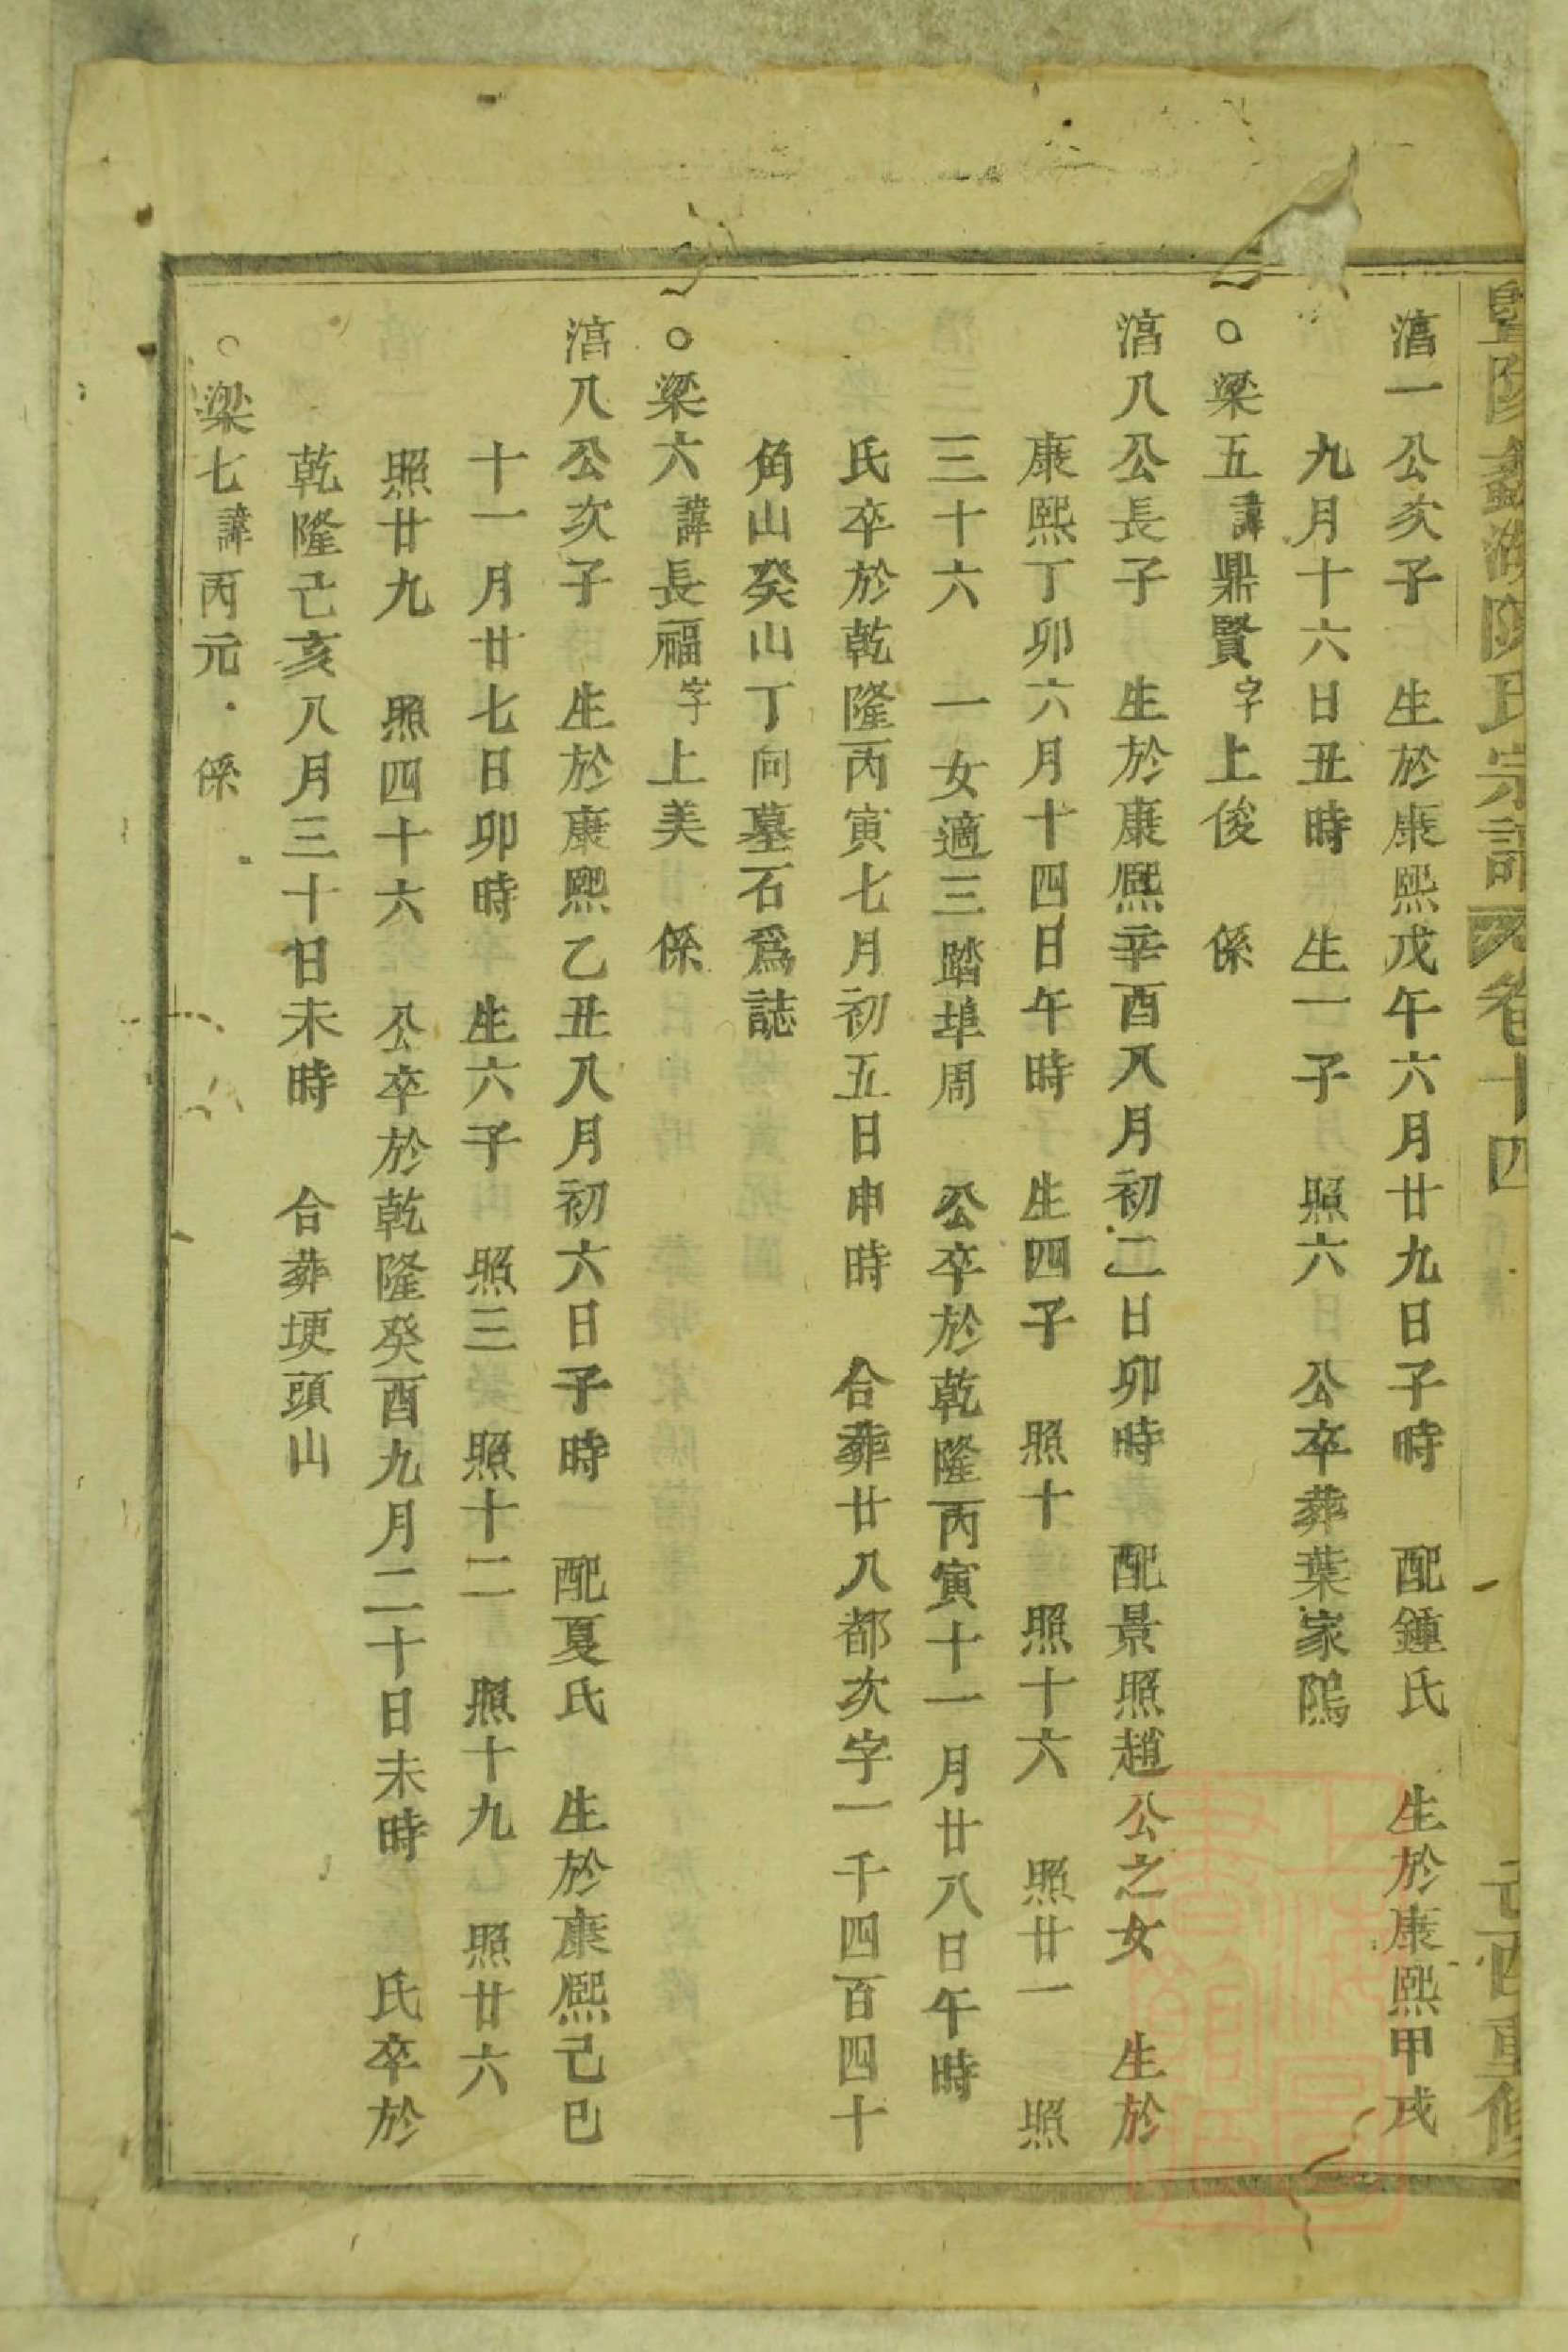 暨陽鑫湖陳氏宗譜 卷十四 己酉重修
滈一公次子 生於康熙戊午六月廿九日子時 配鍾氏 生於康熙甲戌
九月十六日丑時 生一子 照六 公卒葬葉家隖
○梁五諱鼎賢字上俊 係
滈八公長子 生於康熙辛酉八月初二日卯時 配景照趙公之女 生於
康熙丁卯六月十四日午時 生四子 照十 照十六 照廿一 照
三十六 一女適三踏埠周 公卒於乾隆丙寅十一月廿八日午時
氏卒於乾隆丙寅七月初五日申時 合葬廿八都次字一千四百四十
角山癸山丁向墓石爲誌
○梁六諱長福字上美 係
滈八公次子 生於康熙乙丑八月初六日子時 配夏氏 生於康熙己巳
十一月廿七日卯時 生六子 照三 照十二 照十九 照廿六
照廿九 照四十六 公卒於乾隆癸酉九月二十日未時 氏卒於
乾隆己亥八月三十日未時 合葬埂頭山
○梁七諱丙元 係